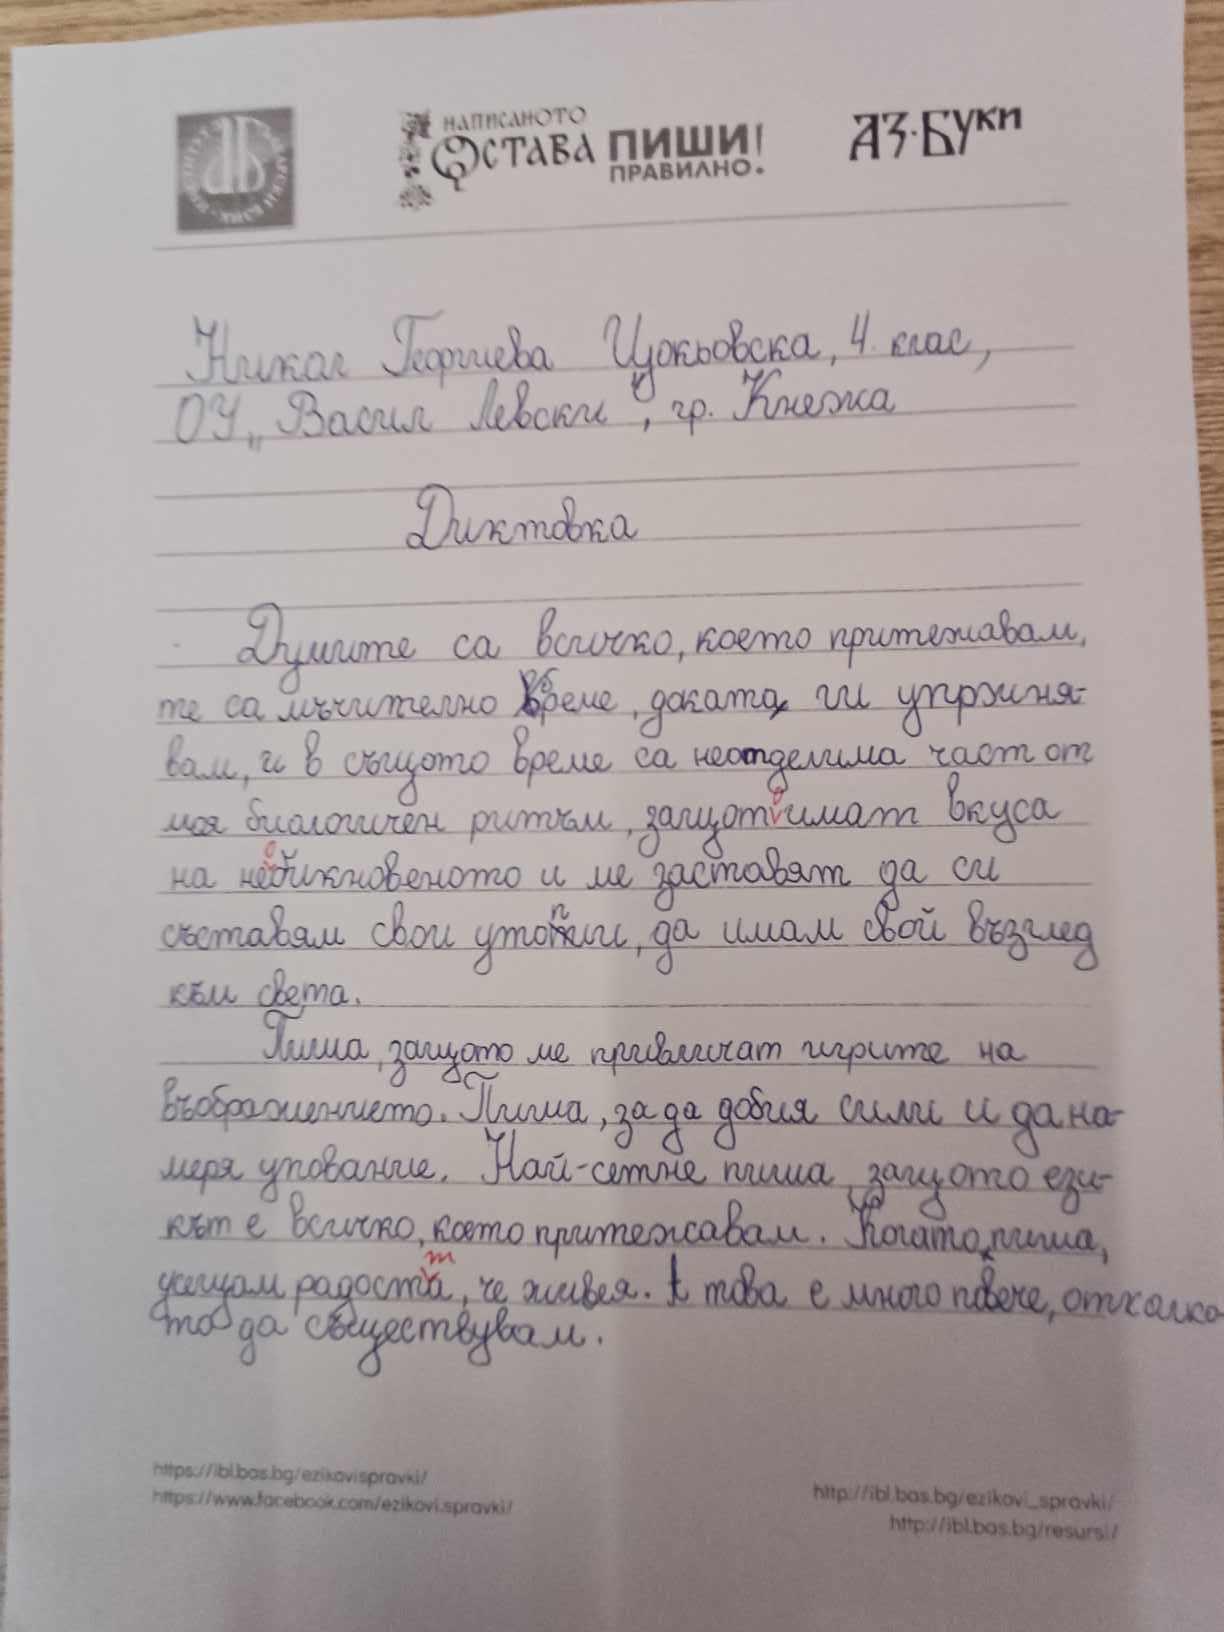 НАПИСАНОТО
ОСТАВА ПИШИ!
ПРАВИЛНО.
АЗ·БУКИ
Никол Георгиева Цокьовска, 4. клас,
ОУ „Васил Левски“, гр. Кнежа
Диктовка
Думите са всичко, което притежавам,
те са мъчително бреме, доката ги упражня-
вам, и в същото време са неотделима част от
моя биологичен ритъм, защото имат вкуса
на необикновеното и ме заставят да си
съставям свои утопии, да имам свой възглед
към света.
Пиша, защото ме привличат игрите на
въображението. Пиша, за да добия сили и да на-
меря упование. Най-сетне пиша, защото ези-
кът е всичко, което притежавам. Когато пиша,
усещам радостта, че живея. А това е много повече, отколко
то да съществувам.
https://ibl.bas.bg/ezikovispravki/
https://www.facebook.com/ezikovi.spravki/
http://ibl.bas.bg/ezikovi_spravki/
http://ibl.bas.bg/resursi/